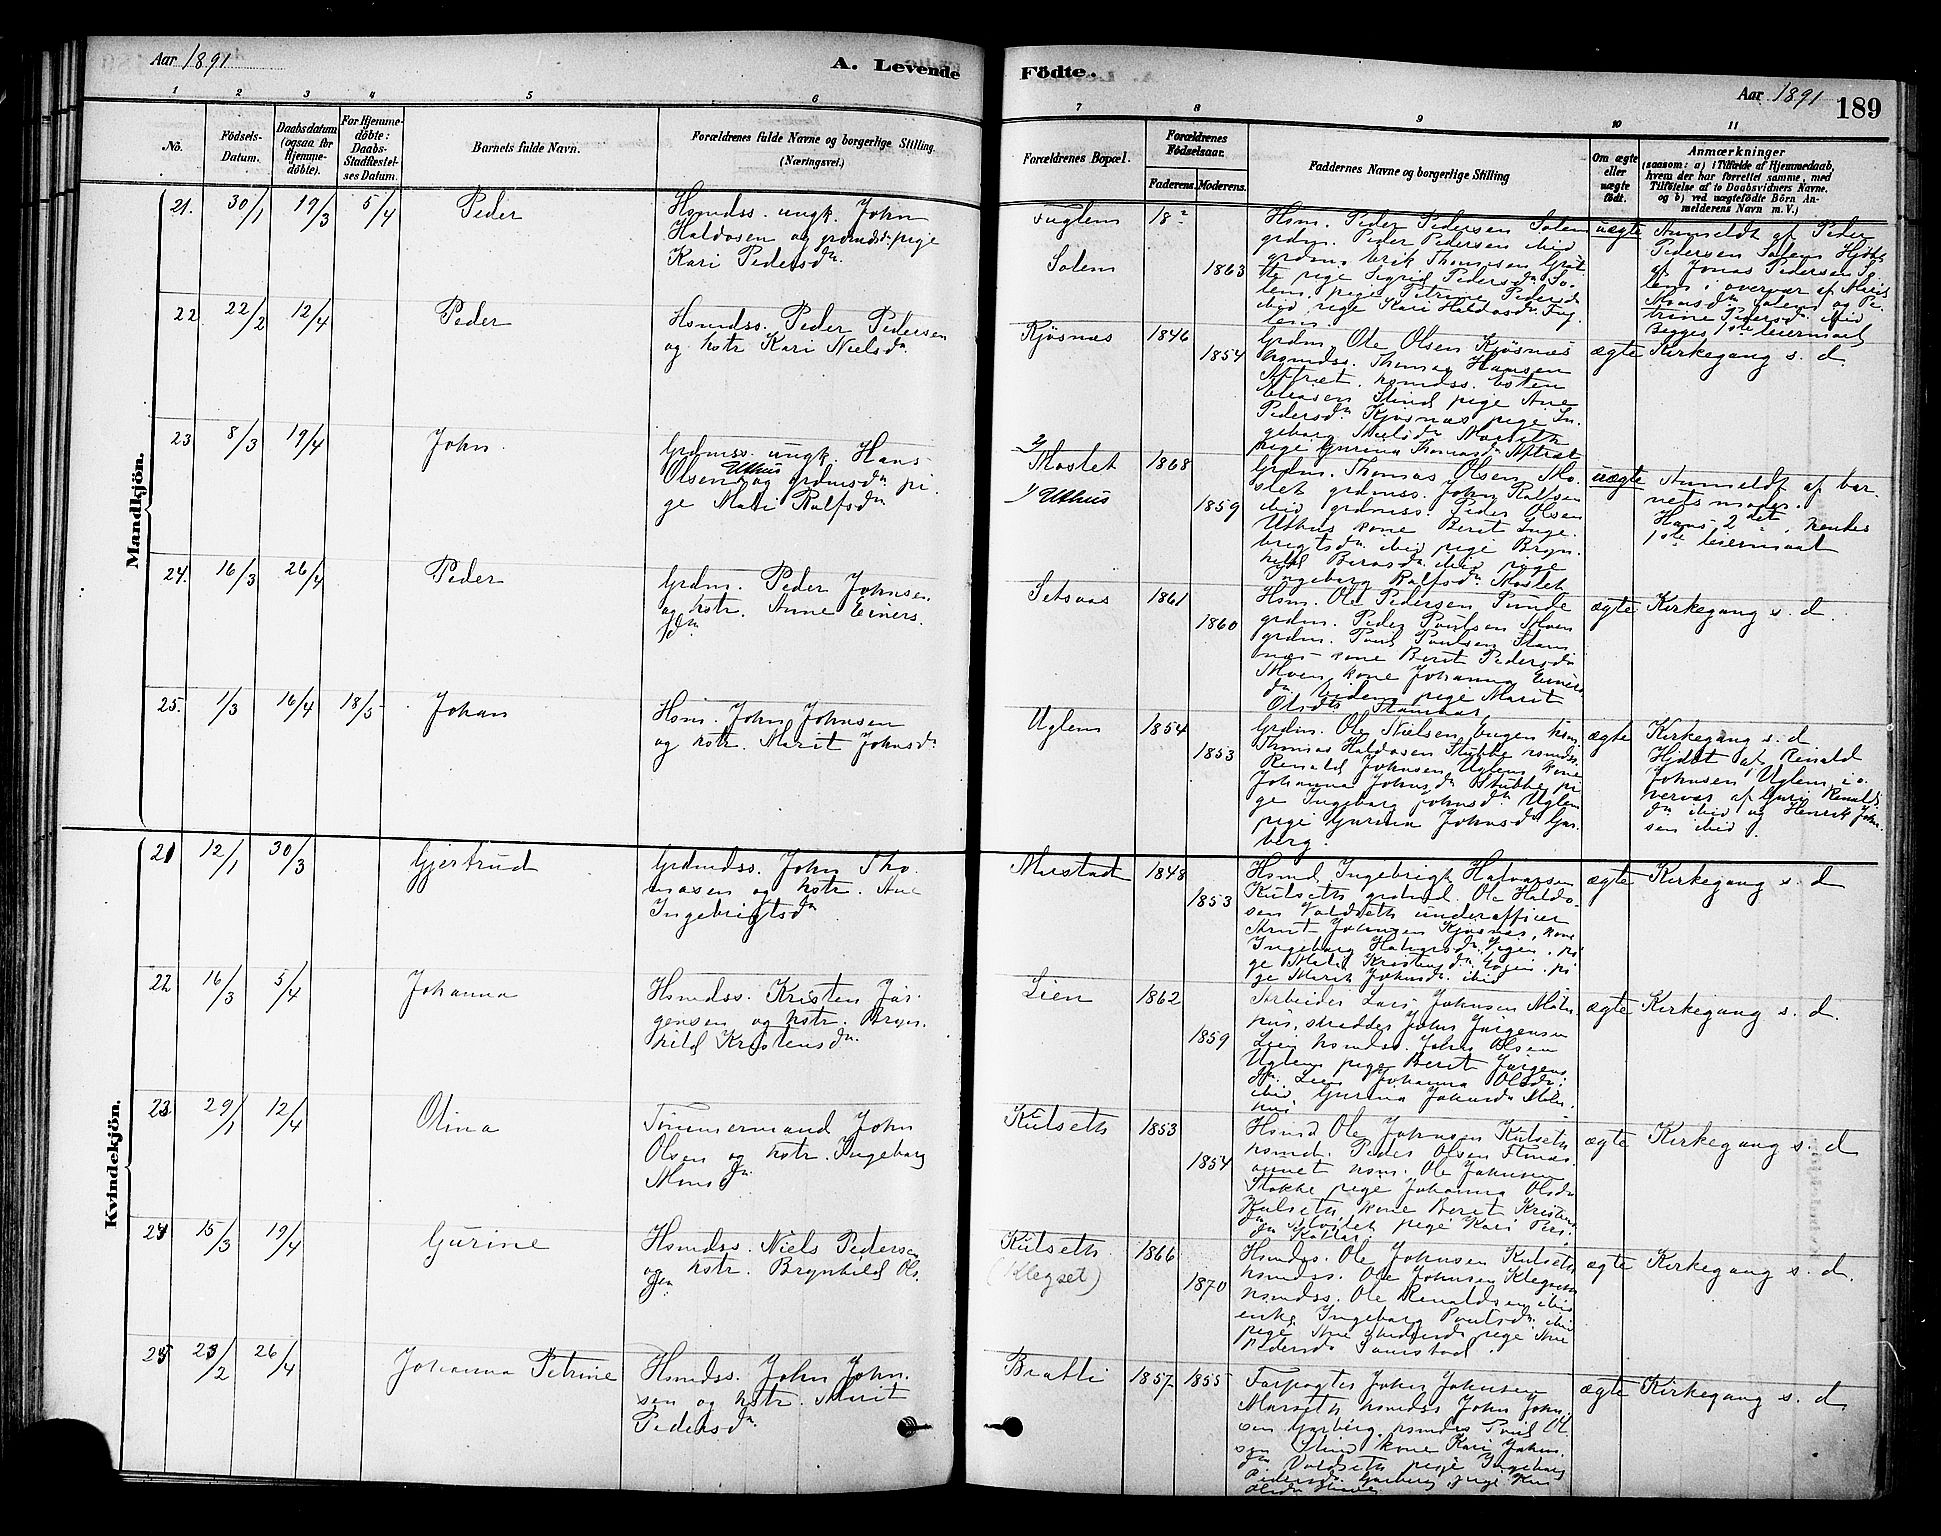 Aar 1891
A. Levende
Födte.
Aar 1891
189
1 2 3 4 5 6 7 8 9 10 11
No.
Födsels-
Datum.
Daabsdatum
(ogsaa for
Hjemme-
döbte).
For Hjemme-
döbte:
Daabs-
Stadfæstel-
ses Datum.
Barnets fulde Navn.
Forældrenes fulde Navne og borgerlige Stilling.
(Næringsvei.)
Forældrenes Bopæl.
Forældrenes
Födselsaar.
Faderens. Moderens.
Faddernes Navne og borgerlige Stilling
Om ægte
eller
uægte
födt.
Anmærkninger
(saasom: a) i Tilfælde af Hjemmedaab,
hvem der har forrettet samme, med
Tilföielse af to Daabsvidners Navne.
og b) ved uægtefödte Börn An-
melderens Navn m.V.)
Mandkjön.
21. 30/1 19/3 5/4 Peder
Hsmdss. ungk. John
Haldosen og grdmdsdr pige
Kari Pedersdr.
Fuglem
Solem
18
1863
Hsm. Peder Pedersen Solem
grdm. Peder Pedersen ibid
grdm. Erik Thomesen
pige Sigrid Pedersdr So-
lem. pige Petrine Pedersdr
ibid, pige Kari Haldosdr Fug-
lem.
uægte
Anmeldt af Peder
Pedersen Solem Hjdbt
af Jonas Pedersen So-
lem i overvær af
Solem og Pe-
trine Pedersdr ibid
Begges 1ste leiermaal
22 22/2 12/4 Peder
Hsmdss. Peder Pedersen
og hstr Kari Nielsdr.
Kjösnæs
1846
1854
Grdm. Ole Olsen Kjösnæs
hsmdss. Thomas Hansen
Aftræt. hsmdss. Esten
Stind pige Ane
Pedersdr Kjösnæs pige In-
geborg Nielsdr
pige Gurina Thomasdr Aftræt
ægte Kirkegang s. d.
23 8/3 19/4 John.
Grdmss. ungk. Hans
Olsen Uthus og grdmsdr pi-
ge Mali Rolfsdr
2/ Mostet
1/ Uthus
1868
1859
Grdm. Thomas Olsen Mo-
stet grdmss. John Rolfsen
ibid grdmss. Peder Olsen
Uthus kone Berit Inge-
brigtsdr ibid pige Bryn-
hild ibid pige
Ingeborg Rolfsdr Mostet
uægte
Anmeldt af bar-
nets moder.
Hans 2det, hendes
1ste leiermaal
24. 16/3 26/4 Peder
Grdm. Peder Johnsen
og hstr. Anne Einers-
dr.
Setsaas
1861
1860
Hsm. Ole Pedersen
grdm. Peder Poulsen Moen
grdm. Poul Poulsen Stam-
næs kone Berit Pedersdr
Moen kone Johanna Einers-
dr pige Marit
Olsdr Stamnæs
ægte Kirkegang s. d.
25. 1/3 16/4 18/5 Johan
Hsm. John Johnsen
og hstr. Marit Johnsdr
Uglem
1854
1853
Grdm. Ole Nielsen Engen hsm.
Thomas Haldosen Stubbe hsmdss.
Renald Johnsen Uglem kone
Johanna Johnsdr Stubbe pi-
ge Ingeborg Johnsdr Uglem
pige Gurina Johnsdr Gar-
berg.
ægte
Kirkegang s. d.
Hjdbt af Renald
Johnsen Uglem i o-
vervær af Guri Renalds-
dr ibid og Henrik John-
sen ibid.
Kvindekjön.
21 12/1 30/3 Gjertrud
Grdmdss. John Tho-
masen og hstr. Ane
Ingebrigtsdr
Mustadt
1848
1853
Hsmd Ingebrigt Halvorsen
Kulseth grdmd. Ole Haldo-
sen Voldseth underofficer
Arnt Johnsen Kjösnæs, kone
Ingeborg pi-
ge Mali Kristensdr pi-
ge Marit Johnsdr ibid
ægte Kirkegang s. d
22 16/3 5/4 Johanna
Hsmdss. Kristen Jör-
gensen og hstr. Bryn-
hild Kristensdr.
Lien
1862
1859
Arbeider Lars Johnsen
skrædder John Jörgensen
Lien hsmdss. John Olsen
Uglem pige Berit Jörgens-
dr. Lien Johanna Olsdr.
ibid, Gurina Johnsdr
ægte Kirkegang s. d.
23 29/1 12/4 Olina
Tömmermand John
Olsen og hstr. Ingeborg
Monsdr
Kulseth
1853
1854
Hsmd Ole Johnsen Kulseth
hsmd. Peder Olsen
hsm. Ole Johnsen
Stokke pige Johanna Olsdr
Kulseth, kone Beret Kristens-
dr Mostet pige Kari
ægte Kirkegang s. d
24 15/3 19/4 Gurine
Hsmdss. Niels Pedersen
og hstr. Brynhild Ols-
dr
Kulseth
(Klegset)
1866
1870
Hsmdss. Ole Johnsen Kulseth
hsmdss. Ole Johnsen Klegseth
hsmdss. Ole Renaldsen ibid
enke Ingeborg Poulsdr ibid
pige Ane pige Ane
Pedersdr
ægte Kirkegang s. d.
25 23/2 26/4 Johanna Petrine
Hsmdss. John John-
sen og hstr. Marit
Pedersdr
Bratli
1857 1855
Forpagter John Johnsen
Marseth hsmdss John John-
sen Garberg, hsmdss Poul Ol-
sen Stind kone Kari Johns-
dr Voldseth pige Ingeborg
Pedersdr Garberg pige
Olsdr
ægte Kirkegang s. d